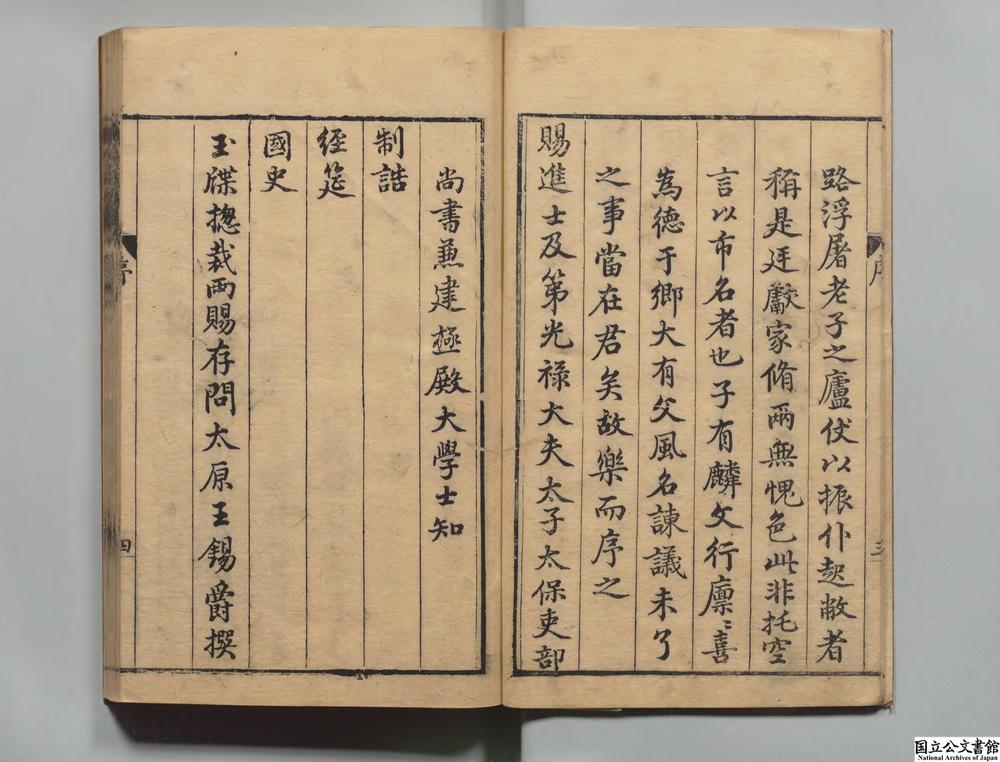 路浮屠老子之廬仗以振仆起敝者
稱是廷獻家脩兩無愧色此非托空
言以市名者也子有麟文行廩〻喜
為德于鄉大有父風名諫議未了
之事當在君矣故樂而序之
賜進士及第光祿大夫太子太保吏部
序
三
尚書兼建極殿大學士知
制誥
經筵
國史
玉牒揔裁兩賜存問太原王錫爵撰
序
四
国立公文書館
National Archives of Japan